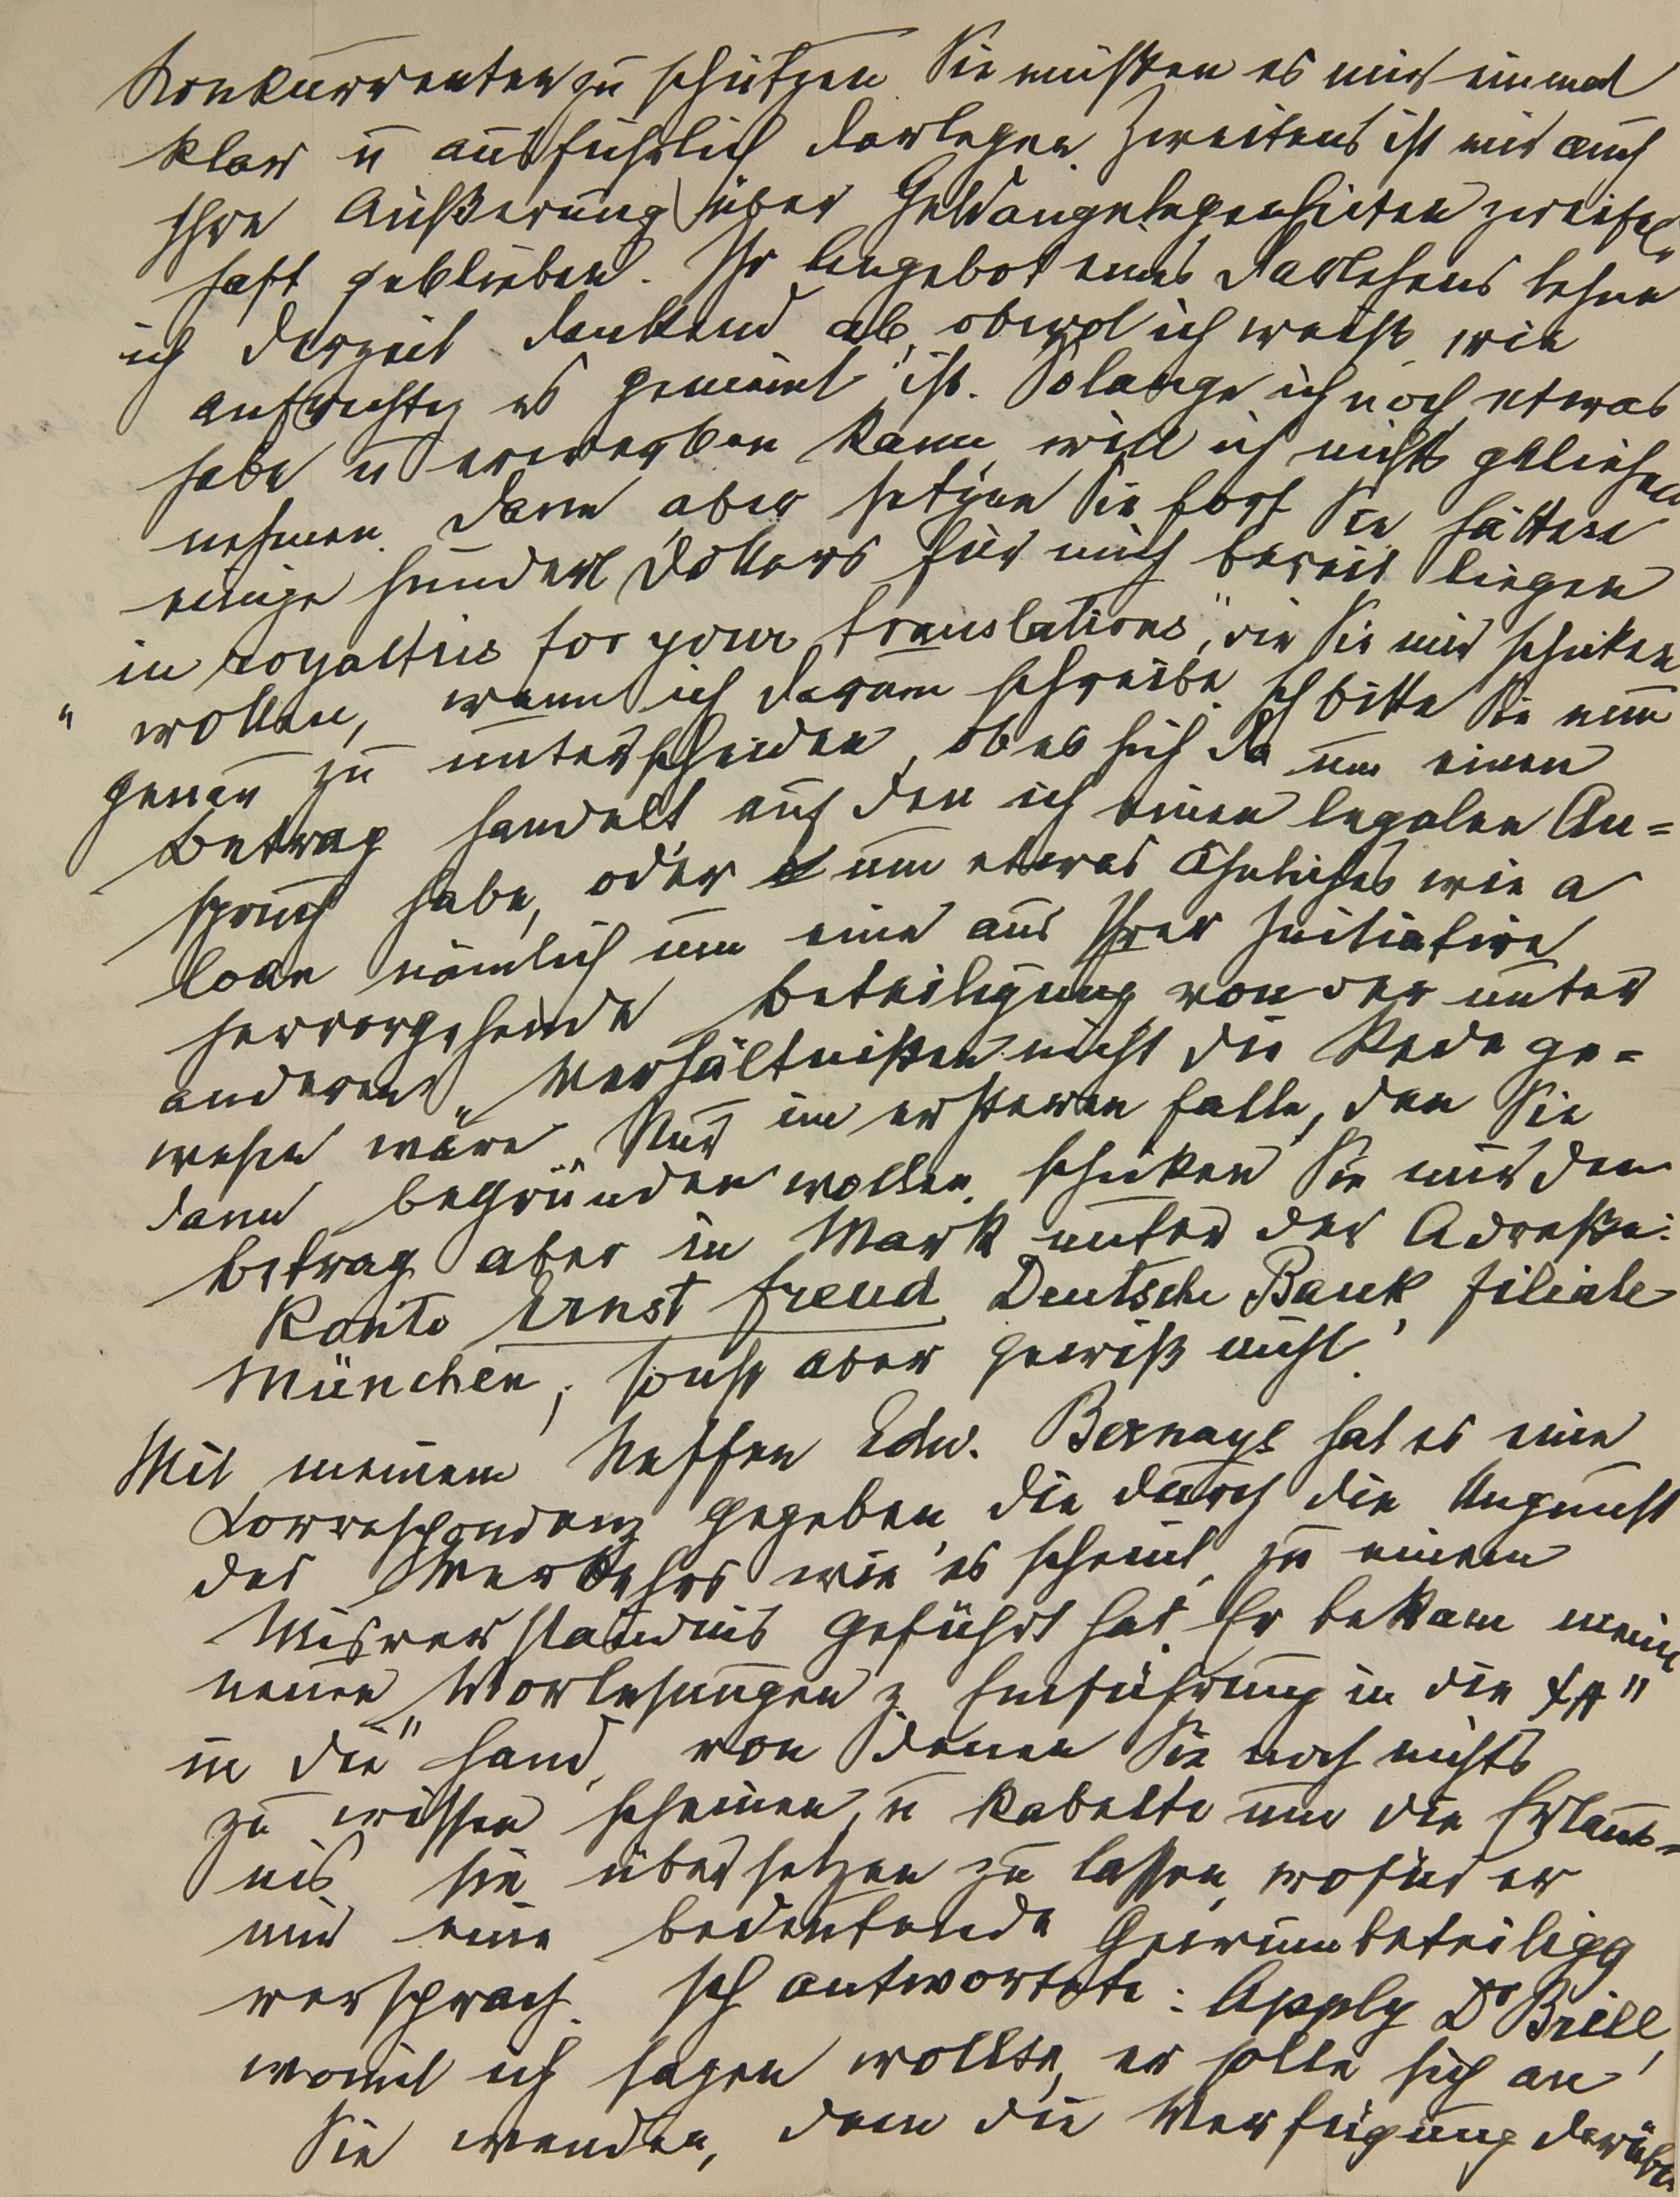 Konkurrenten zu schützen. Sie müßten es mir einmal
klar u ausführlich darlegen. Zweitens ist mir auch
Ihre Äußerung über Geldangelegenheiten zweifel-
haft geblieben. Ihr Angebot eines Darlehens lehne
ich derzeit dankend ab, obwol ich weiß, wie
aufrichtig es gemeint ist. Solange ich noch etwas
habe u erwerben kann, will ich nichts geliehen
nehmen. Dann aber setzen Sie fort, Sie hätten
einige hundert Dollars für mich bereit liegen
in royalties for your translations", die Sie mir schicken
" wollen, wenn ich darum schreibe. Ich bitte Sie nun
genau zu unterscheiden, ob es sich da um einen
Betrag handelt auf den ich einen legalen An=
spruch habe, oder um etwas Ähnliches wie a
loan nämlich um eine aus Ihrer Initiative
hervorgehende Beteiligung, von der unter
anderen Verhältnißen nicht die Rede ge=
wesen wäre. Nur im ersteren Falle, den Sie
dann begründen wollen, schicken Sie mir den
Betrag aber in Mark unter der Adreße:
Konto Ernst Freud, Deutsche Bank, Filiale
München, sonst aber gewiß nicht.
Mit meinem Neffen Edw. Bernays hat es eine
Correspondenz gegeben, die durch die Ungunst
des Verkehrs wie es scheint, zu einem
Misverständnis geführt hat. Er bekam meine
neuen „Vorlesungen z Einführung in die ΨA"
in die Hand, von denen Sie noch nichts
zu wissen scheinen, u kabelte um die Erlaub-
nis, sie übersetzen zu lassen, wofür er
mir eine bedeutende Gewinnbeteiligg
versprach. Ich antwortete: Apply Dr Brill,
womit ich sagen wollte, er solle sich an
Sie wenden, denn die Verfügung darüber